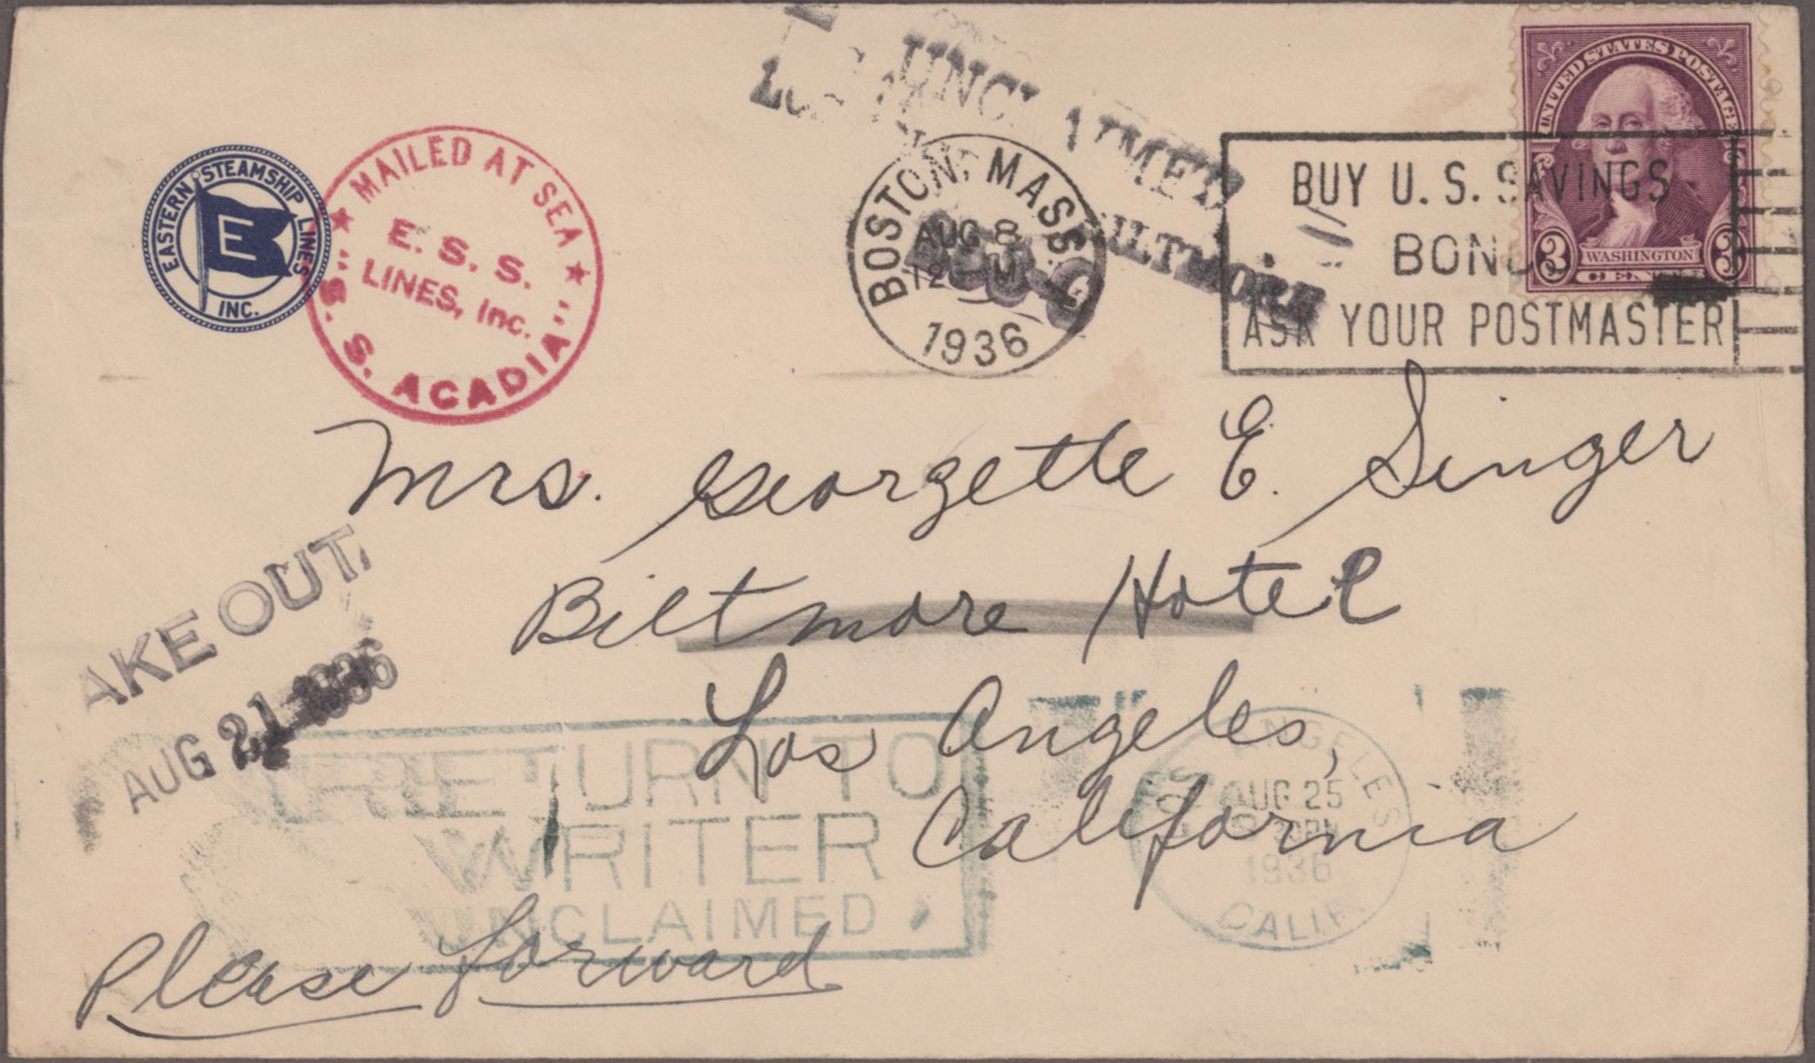 UNCLAIMED
BILTMORE
UNITED STATES POSTAGE
3 WASHINGTON 3
CENTS
EASTERN STEAMSHIP LINES
E
INC.
★ MAILED AT SEA ★
E. S. S.
LINES, Inc.
"S. S. ACADIA"
BOSTON, MASS.
AUG 8
1936
BUY U. S. SAVINGS
BONDS
ASK YOUR POSTMASTER
Mrs. Georgette E. Singer
Biltmore Hotel
Los Angeles,
California
AKE OUT
AUG 21 1936
RETURN TO
WRITER
UNCLAIMED
LOS ANGELES
AUG 25
1936
CALIF.
Please forward